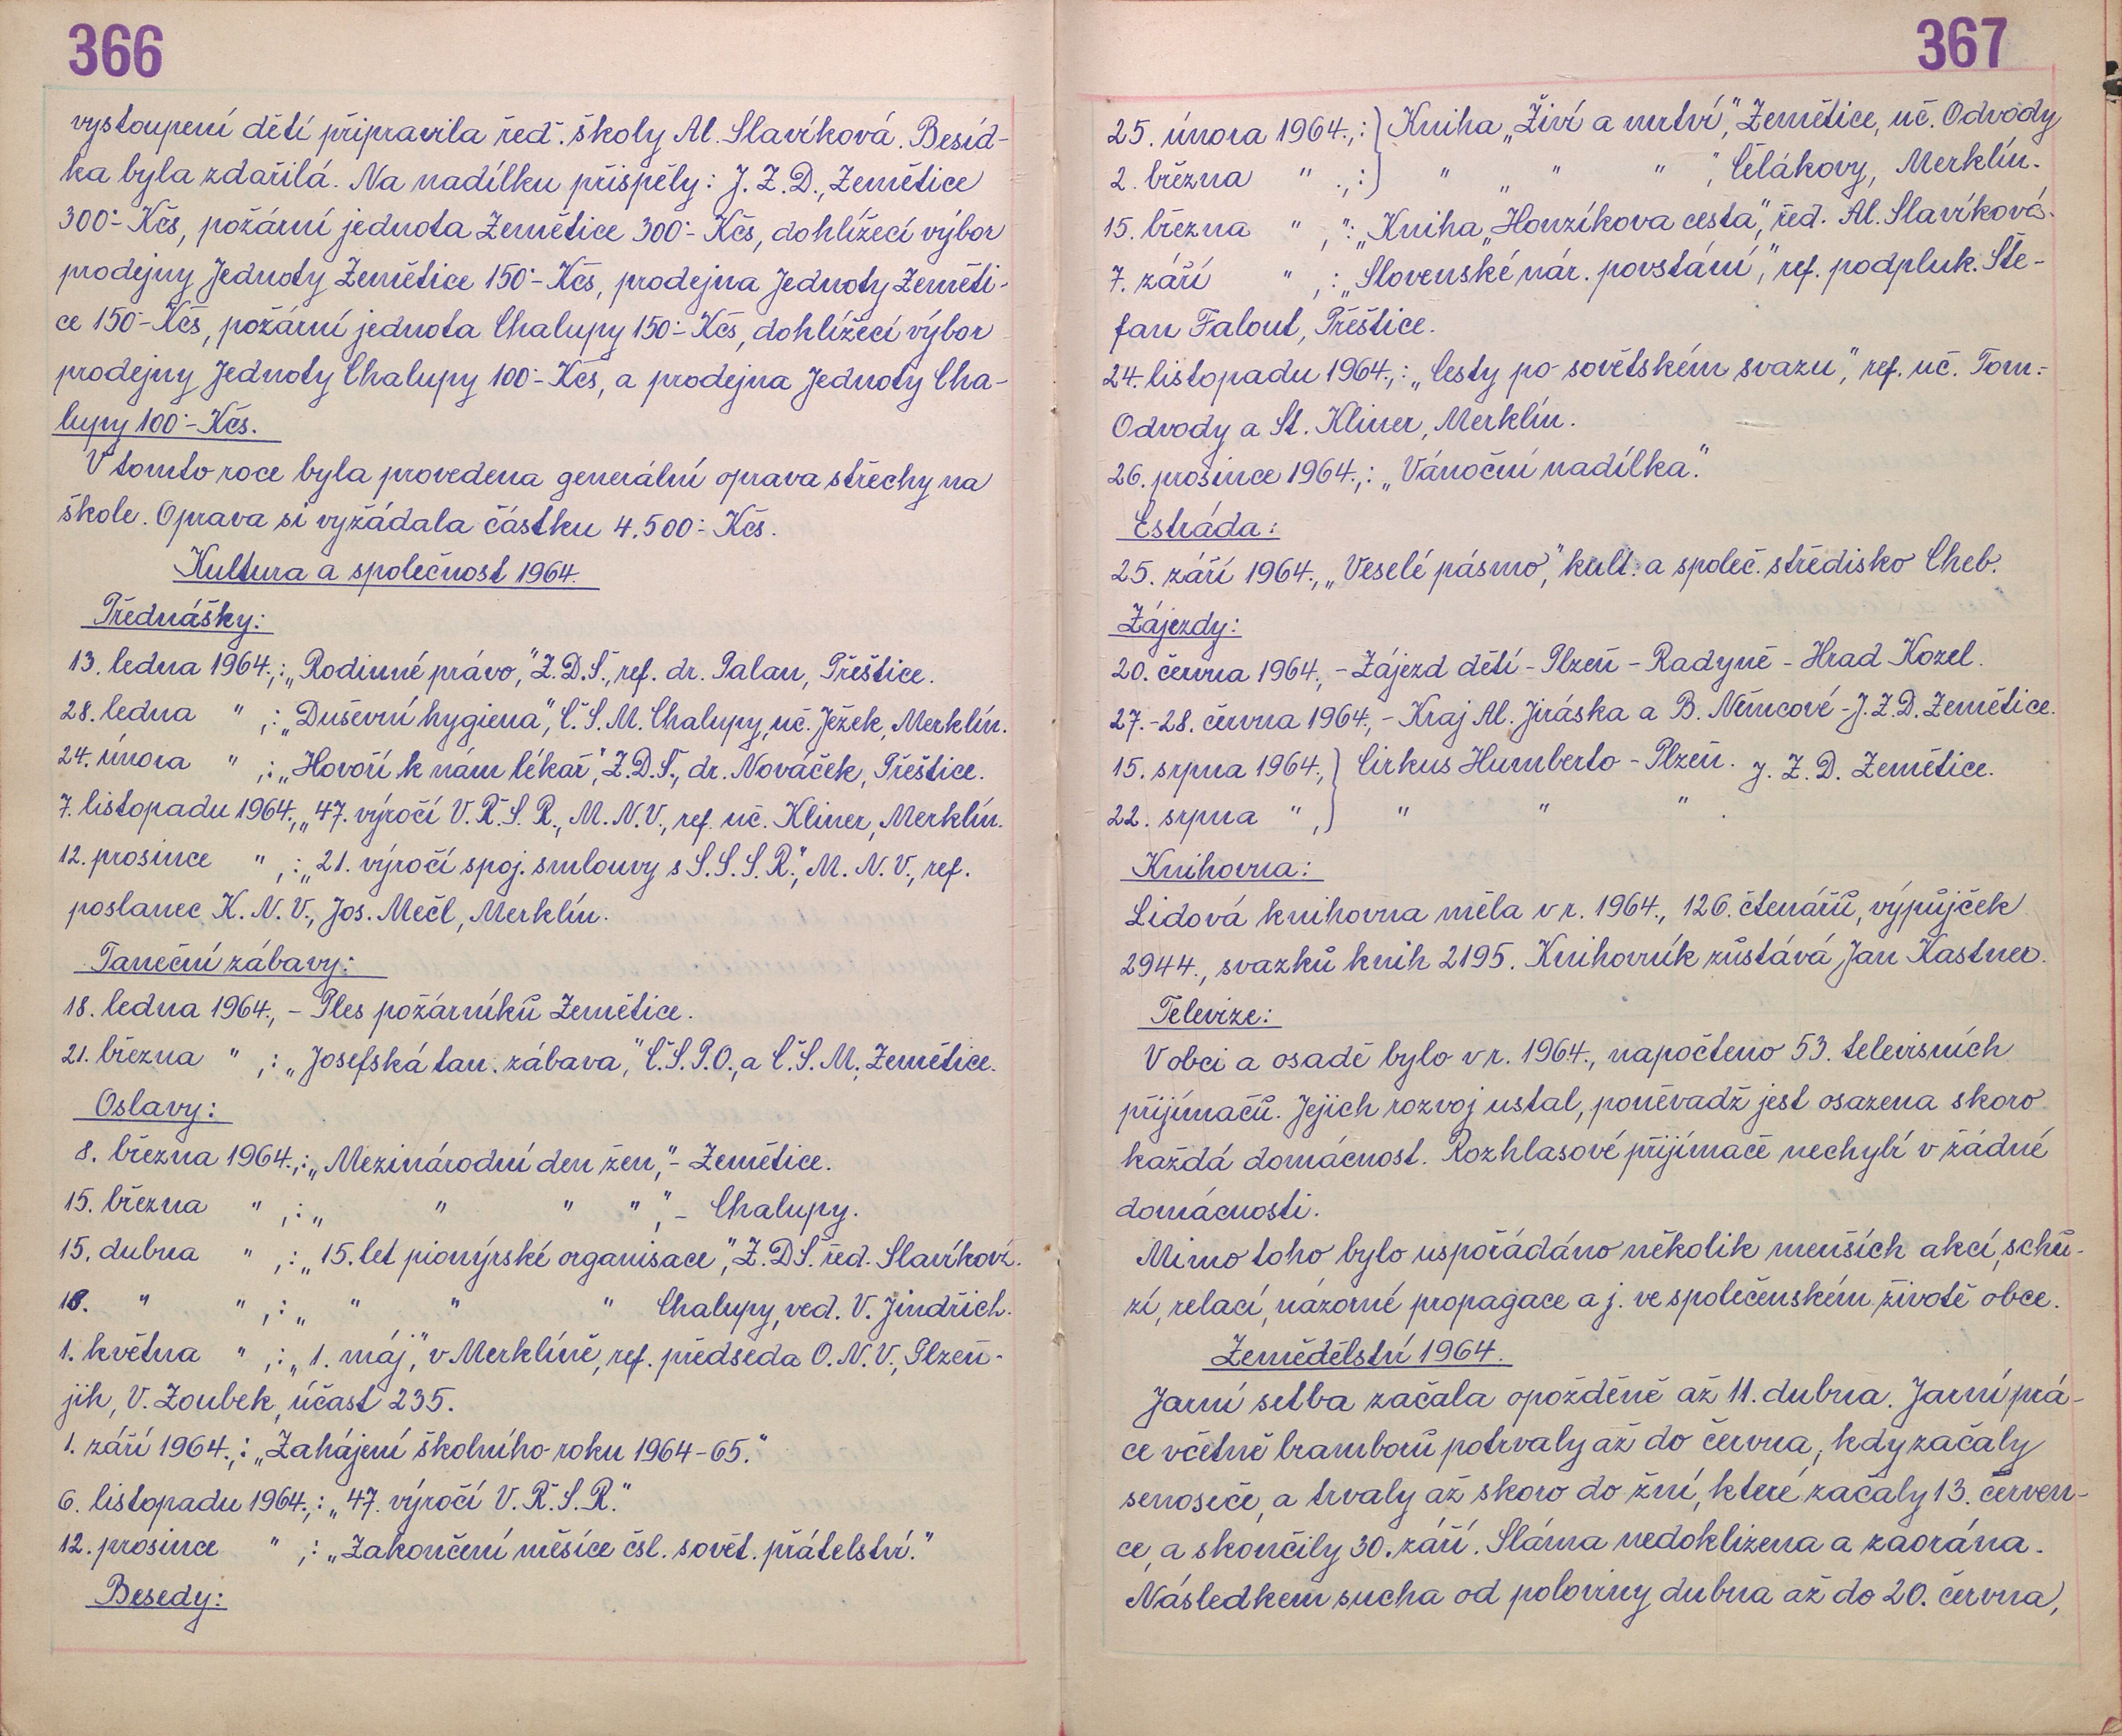 366
vystoupení dětí připravila řed. školy Al. Slavíková. Besíd-
ka byla zdařilá. Na nadílku přispěly: J. Z. D., Zemětice
300·- Kčs, požární jednota Zemětice 300·- Kčs, dohlížecí výbor
prodejny Jednoty Zemětice 150·- Kčs, prodejna Jednoty Zeměti-
ce 150·- Kčs, požární jednota Chalupy 150·- Kčs, dohlížecí výbor
prodejny Jednoty Chalupy 100·- Kčs, a prodejna Jednoty Cha-
lupy 100·- Kčs.
V tomto roce byla provedena generální oprava střechy na
škole. Oprava si vyžádala částku 4.500·- Kčs.
Kultura a společnost 1964.
Přednášky:
13. ledna 1964.,: „Rodinné právo," Z.D.Š., ref. dr. Palan, Přeštice.
28. ledna " ,: „Duševní hygiena", Č.S.M. Chalupy, uč. Ježek, Merklín.
24. února " ,: „Hovoří k nám lékař", Z.D.Š., dr. Nováček, Přeštice.
7. listopadu 1964., „47. výročí V. Ř. S. R., M. N. V., ref. uč. Kliner, Merklín.
12. prosince " ,: „21. výročí spoj. smlouvy s S. S. S. R.", M. N. V., ref.
poslanec K. N. V., Jos. Mečl, Merklín.
Taneční zábavy:
18. ledna 1964., - Ples požárníků Zemětice.
21. března " ,: „Josefská tan. zábava," Č.S.P.O., a Č.S.M., Zemětice.
Oslavy:
8. března 1964.,: „Mezinárodní den žen," - Zemětice.
15. března " ,: „ " " " ," - Chalupy.
15. dubna " ,: „15. let pionýrské organisace", Z.D.Š. řed. Slavíková.
18. " " ,: „ " " " Chalupy, ved. V. Jindřich.
1. května " ,: „1. máj," v Merklíně, ref. předseda O. N. V., Plzeň-
jih, V. Zoubek, účast 235.
1. září 1964.,: „Zahájení školního roku 1964-65."
6. listopadu 1964.,: „47. výročí V. Ř. S. R."
12. prosince " ,: „Zakončení měsíce čsl. sovět. přátelství."
Besedy:
367
25. února 1964.,:) Kniha „Živí a mrtví", Zemětice, uč. Odvody
2. března " .,:) " „ " " ", Čelákovy, Merklín.
15. března " ,": „Kniha „Honzíkova cesta", řed. Al. Slavíková.
7. září " ,: „Slovenské nár. povstání", ref. podpluk. Šte-
fan Falout, Přeštice.
24. listopadu 1964.,: „Cesty po sovětském svazu", ref. uč. Tom.-
Odvody a St. Kliner, Merklín.
26. prosince 1964.,: „Vánoční nadílka".
Estráda:
25. září 1964., „Veselé pásmo", kult. a společ. středisko Cheb.
Zájezdy:
20. června 1964., - Zájezd dětí - Plzeň - Radyně - Hrad Kozel.
27.-28. června 1964., - Kraj Al. Jiráska a B. Němcové - J. Z. D. Zemětice.
15. srpna 1964.,) Cirkus Humberto - Plzeň. J. Z. D. Zemětice.
22. srpna " ,) " " " .
Knihovna:
Lidová knihovna měla v r. 1964., 126. čtenářů, výpůjček
2944., svazků knih 2195. Knihovník zůstává Jan Kastner.
Televize:
V obci a osadě bylo v r. 1964., napočteno 53. televisních
přijímačů. Jejich rozvoj ustal, poněvadž jest osazena skoro
každá domácnost. Rozhlasové přijímače nechybí v žádné
domácnosti.
Mimo toho bylo uspořádáno několik menších akcí, schů-
zí, relací, názorné propagace a j. ve společenském životě obce.
Zemědělství 1964.
Jarní setba začala opožděně až 11. dubna. Jarní prá-
ce včetně bramborů potrvaly až do června, kdy začaly
senoseče, a trvaly až skoro do žní, které začaly 13. červen-
ce, a skončily 30. září. Sláma nedoklizena a zaorána.
Následkem sucha od poloviny dubna až do 20. června,